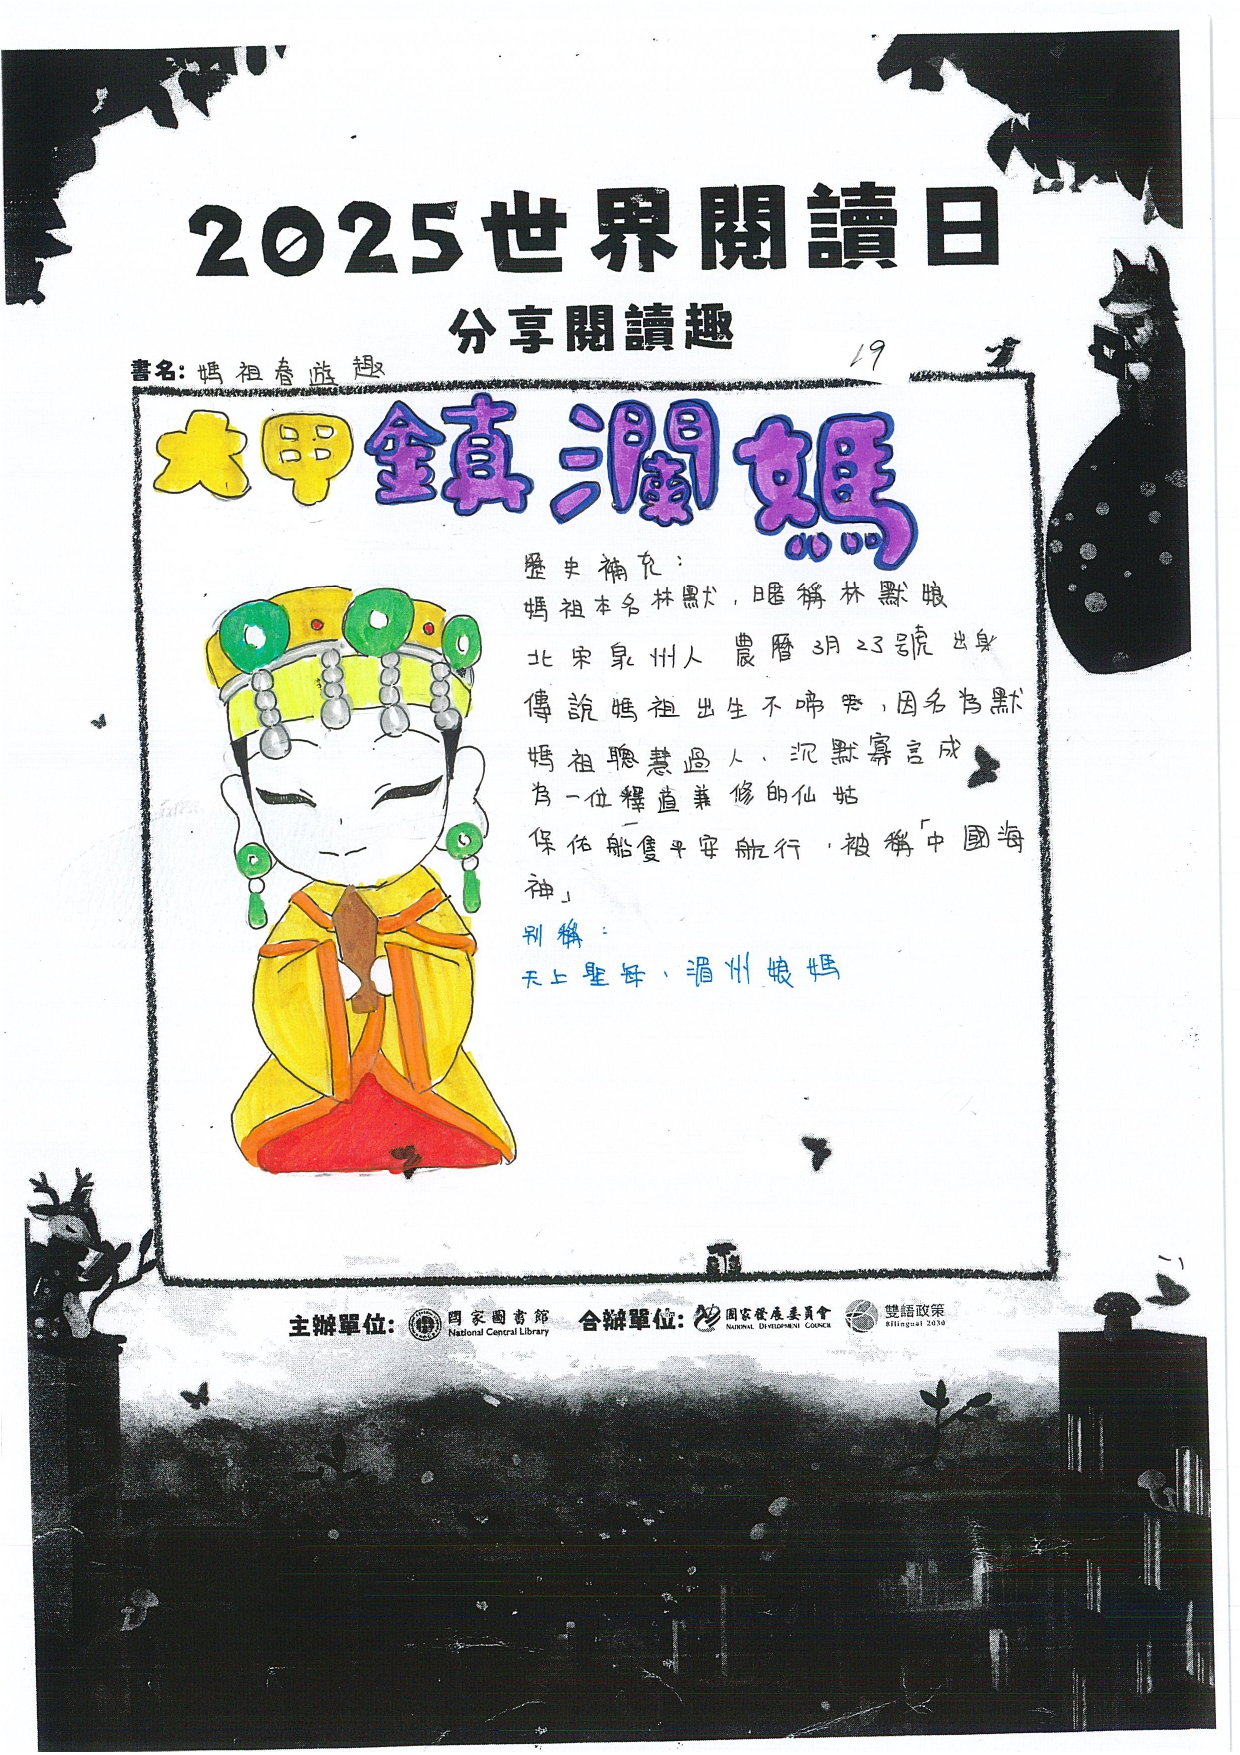 2025世界閱讀日
分享閱讀趣
19
書名: 媽祖春遊趣
大甲鎮瀾媽
歷史補充:
媽祖本名林默,暱稱林默娘
北宋泉州人 農曆3月23號出身
傳說媽祖出生不啼哭,因名為默
媽祖聰慧過人、沉默寡言成
為一位釋道兼修的仙姑
保佑船隻平安航行,被稱「中國海
神」
別稱:
天上聖母、湄州娘媽
主辦單位: 國家圖書館 National Central Library 合辦單位: 國家發展委員會 National Development Council 雙語政策 Bilingual 2030